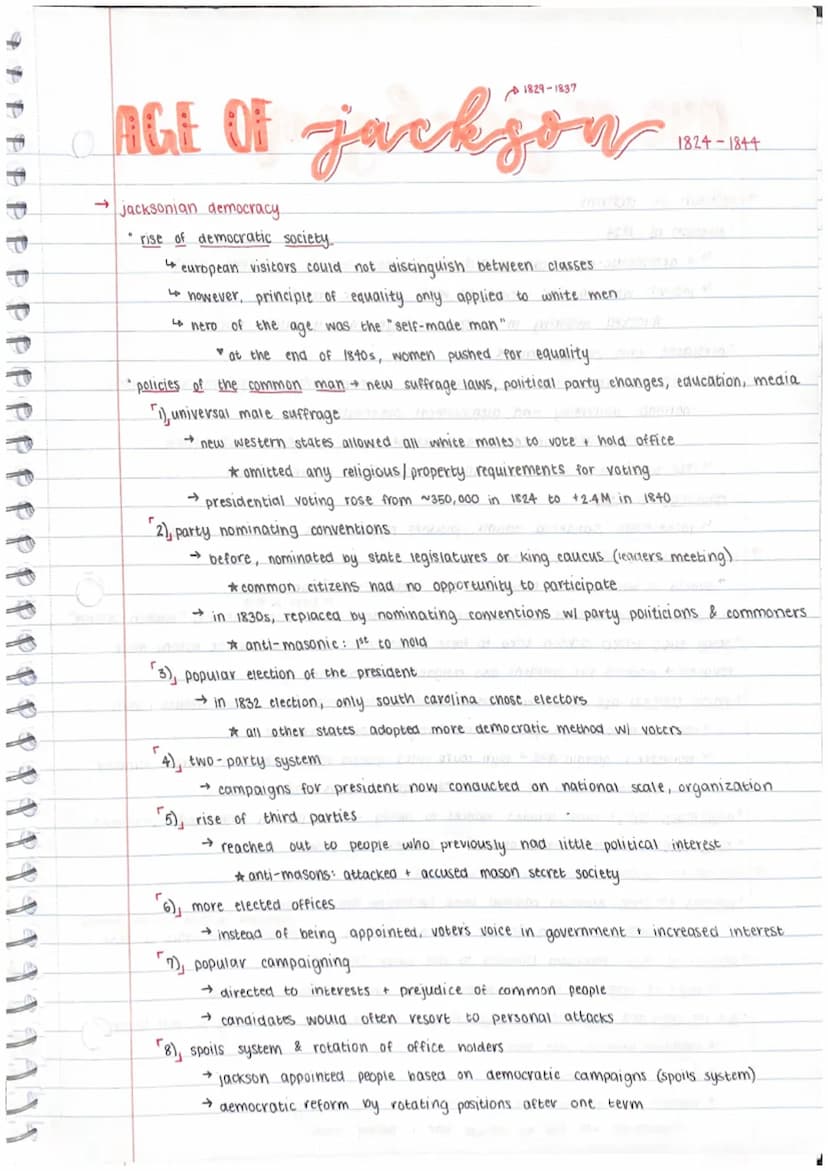 1829-1837
AGE OF jackson 1824-1844
→ jacksonian democracy
• rise of democratic society
↳ european visitors could not distinguish between classes
↳ however, principle of equality only applied to white men
↳ hero of the age was the "self-made man"
♥ at the end of 1840s, women pushed for equality
• policies of the common man → new suffrage laws, political party changes, education, media
1) universal male suffrage
→ new western states allowed all white males to vote + hold office
★ omitted any religious/property requirements for voting
→ presidential voting rose from ~350,000 in 1824 to +2.4M in 1840
2) party nominating conventions
→ before, nominated by state legislatures or king caucus (leaders meeting)
★ common citizens had no opportunity to participate
→ in 1830s, replaced by nominating conventions w/ party politicians & commoners
★ anti-masonic: 1st to hold
3) popular election of the president
→ in 1832 election, only south carolina chose electors
★ all other states adopted more democratic method w/ voters
4) two-party system
→ campaigns for president now conducted on national scale, organization
5) rise of third parties
→ reached out to people who previously had little political interest
★ anti-masons: attacked + accused mason secret society
6) more elected offices
→ instead of being appointed, voter's voice in government + increased interest
7) popular campaigning
→ directed to interests + prejudice of common people
→ candidates would often resort to personal attacks
8) spoils system & rotation of office holders
→ jackson appointed people based on democratic campaigns (spoils system)
→ democratic reform by rotating positions after one term